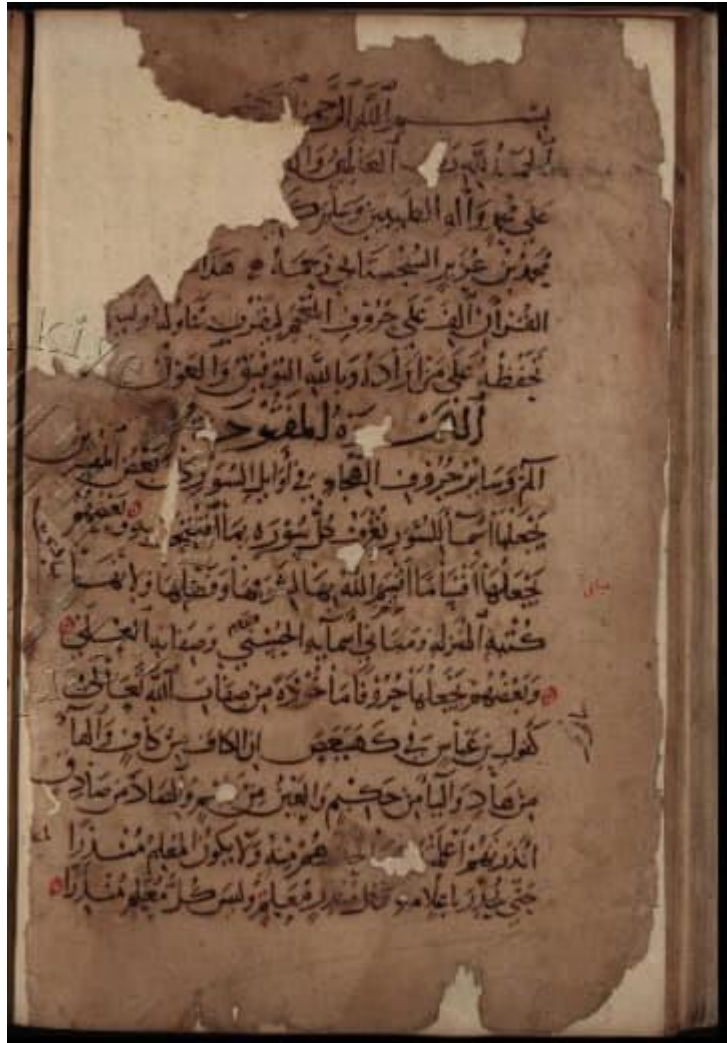 بسم الله الرحمن الرحيم
الحمد لله رب العالمين
على محمد وآله الطيبين
محمد بن عزير السجستاني رحمه هذا
القران ألف على حروف المعجم ليقرب تناوله
تحفظه على من اراده وبالله التوفيق والعون
الهمزة المفتوحة
الم وسائر حروف الهجاء في أوايل السور كان بعض المفسرين
يجعلها اسماً للسور تعرف كل سورة بما افتتحت به وبعضهم
يجعلها أقساما اقسم الله بها لشرفها وفضلها ولانها
كتبه المنزله ومباني أسمايه الحسنى وصفاته العلى
وبعضهم يجعلها حروفا مأخوذة من صفات الله تعالى
كقول بن عباس في كهيعص ان الكاف من كاف والهآ
من هاد واليآ من حكيم والعين من والصاد من صادق
انذرتهم أعلمتهم منه ولا يكون المعلم منذرا
حتى يحذر باعلامه وكل منذر معلم وليس كل معلم منذرا
مبانى